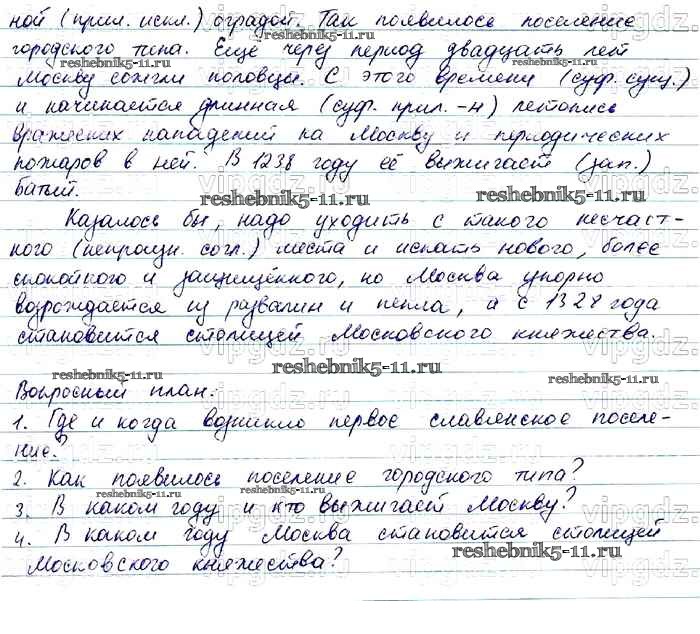 ной (прил. искл.) оградой. Так появилось поселение
городского типа. Ещё через период двадцать лет
Москву сожгли половцы. С этого времени (суф. сущ.)
и начинается длинная (суф. прил. -н) летопись
вражеских нападений на Москву и периодических
пожаров в ней. В 1238 году её выжигает (зап.)
Батый.
reshebnik5-11.ru
Казалось бы, надо уходить с такого несчаст-
ного (непроизн. согл.) места и искать нового, более
спокойного и защищённого, но Москва упорно
возрождается из развалин и пепла, а с 1328 года
становится столицей Московского княжества.
reshebnik5-11.ru
Вопросный план.
1. Где и когда возникло первое славянское поселе-
ние?
2. Как появилось поселение городского типа?
3. В каком году и кто выжигает Москву?
4. В каком году Москва становится столицей
Московского княжества?
reshebnik5-11.ru